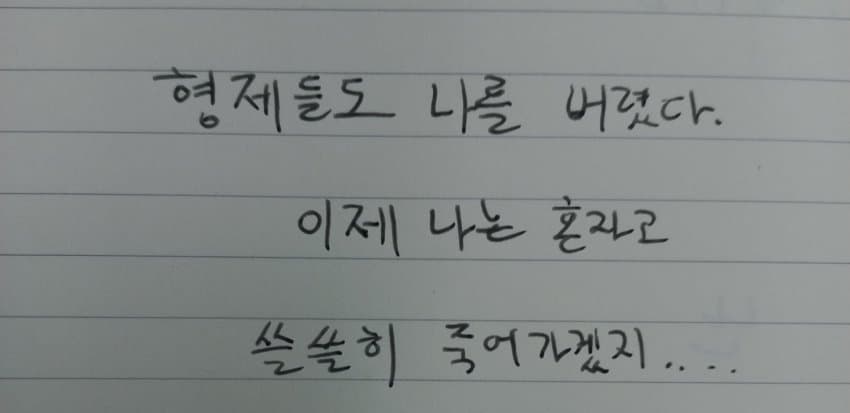 형제들도 나를 버렸다.
이제 나는 혼자고
쓸쓸히 죽어가겠지....